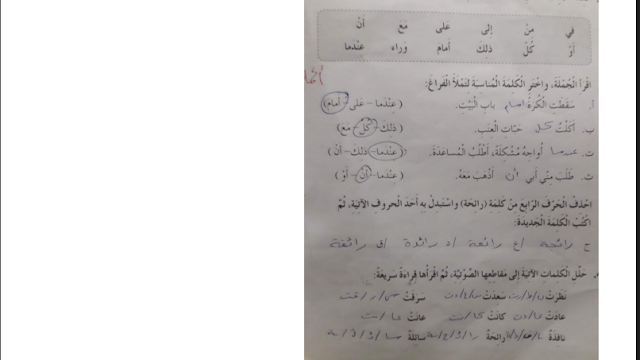 في مِنْ إِلى عَلى مَعَ أَنْ
أَوْ كُلّ ذلِكَ أَمامَ وَراء عِنْدَما
اقْرَأِ الْجُمْلَةَ، واخْتَرِ الْكَلِمَةَ الْمُناسِبَةَ لِتَمْلَأَ الْفَراغَ:
أ. سَقَطَتِ الْكُرَةُ امام بابِ الْبَيْتِ. (عِنْدَما - عَلى - أَمامَ)
ب. أَكَلْتُ كل حَبّاتِ الْعِنَبِ. (ذلِكَ - كُلّ - مَعَ)
ت. عندما أُواجِهُ مُشْكِلَةً، أَطْلُبُ الْمُساعَدَةَ. (عِنْدَما - ذلِكَ - أَنْ)
ث. طَلَبَ مِنّي أَبي ان أَذْهَبَ مَعَهُ. (عِنْدَما - أَنْ - أَوْ)
احْذِفِ الْحَرْفَ الرّابِعَ مِنْ كَلِمَةِ (رائِحَة) واسْتَبْدِلْ بِهِ أَحَدَ الْحُروفِ الْآتِيَةِ، ثُمَّ
اكْتُبِ الْكَلِمَةَ الْجَديدَةَ:
ح رائحة / ع رائعة / د رائدة / ق رائقة
حَلِّلِ الْكَلِماتِ الْآتِيَةَ إِلى مَقاطِعِها الصَّوْتِيَّةِ، ثُمَّ اقْرَأْها قِراءَةً سَريعَةً:
نَظَرَتْ سَعِدَتْ سَرَقَتْ
عادَتْ كانَتْ عانَتْ
نافِذَةٌ رائِحَةٌ سائِلَةٌ